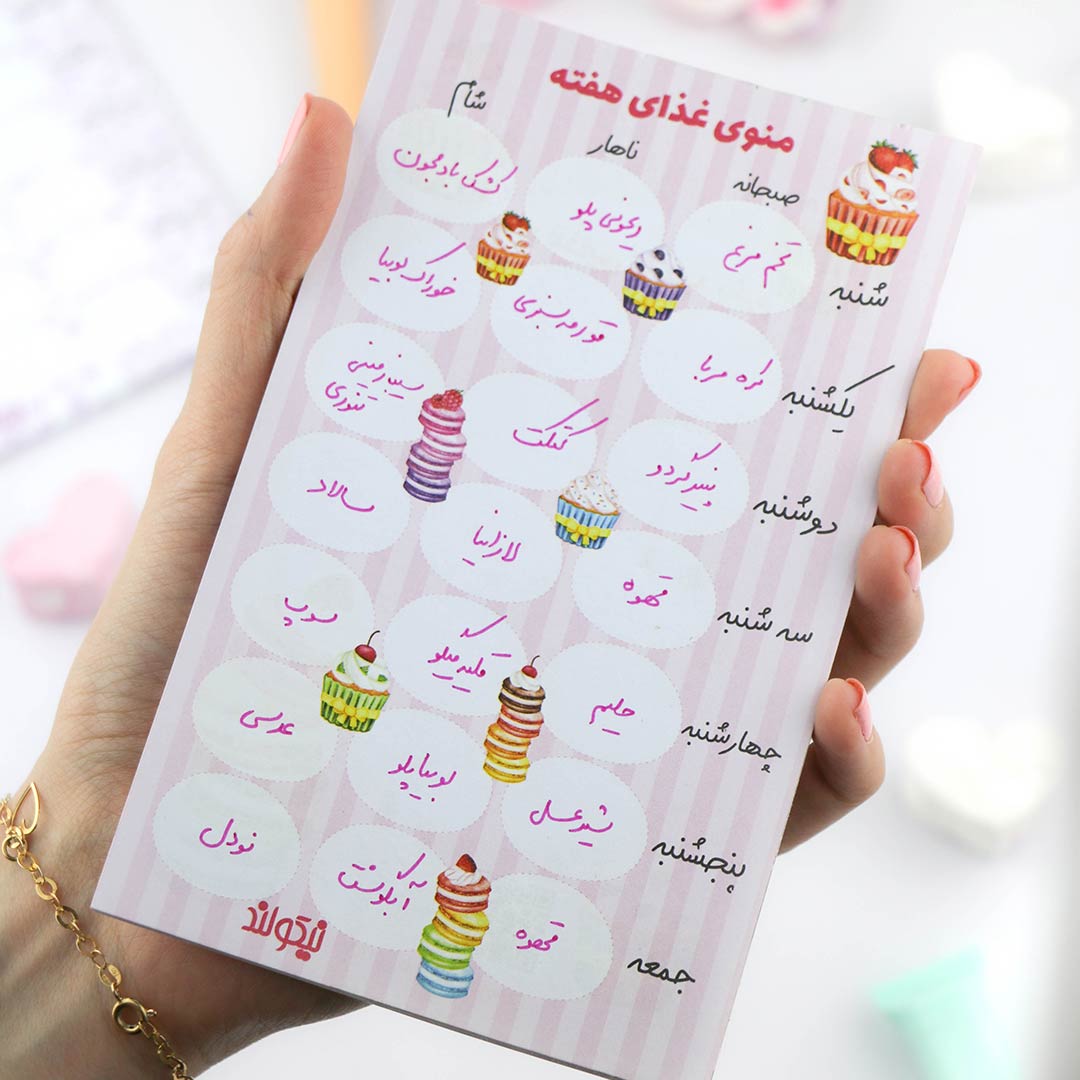 منوی غذای هفته
صبحانه ناهار شام
شنبه تخم مرغ زیتونی پلو کشک بادمجون
یکشنبه کره مربا قورمه سبزی خوراک لوبیا
دوشنبه پنیر گردو کتلت سیب زمینی تنوری
سه شنبه قهوه لازانیا سالاد
چهارشنبه حلیم میگو سوپ
پنجشنبه شیر عسل لوبیا پلو عدسی
جمعه قهوه آبگوشت نودل
نیکولند